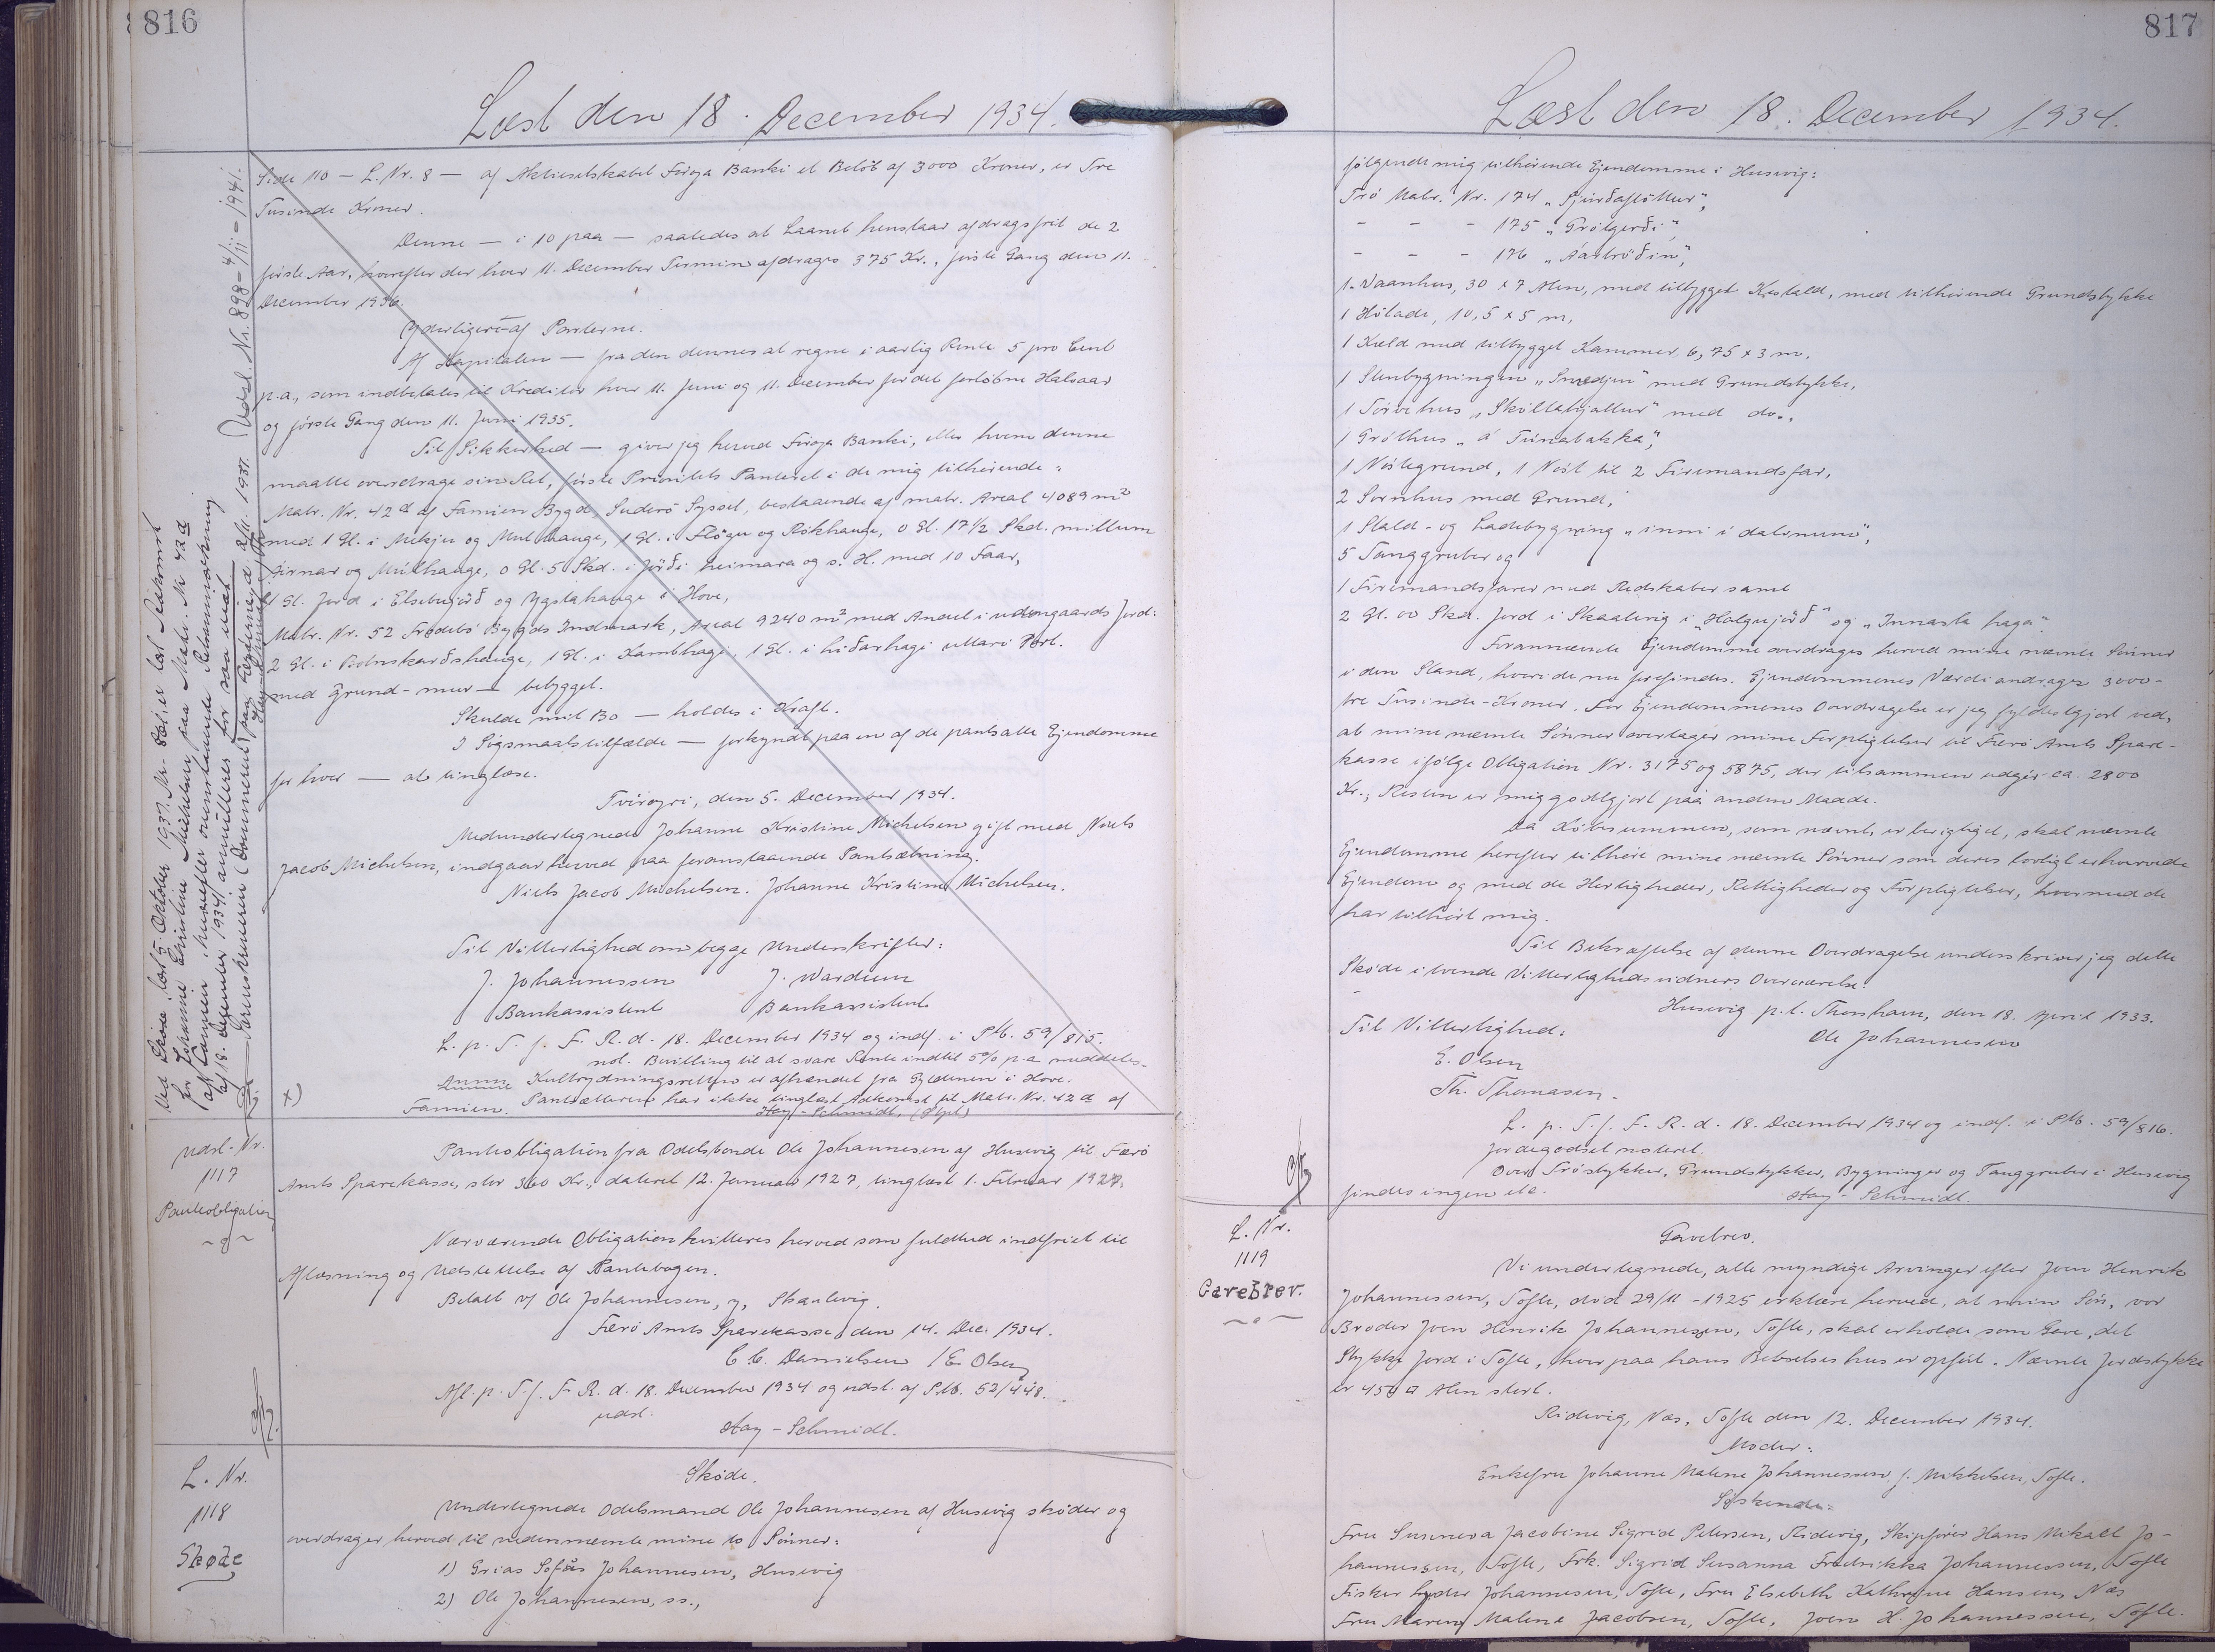 816
Læst den 18. December 1934.
Side 110 — L. Nr. 8 — af Aktieselskabet Føroya Banki et Beløb af 3000 Kroner, er Tre
Tusinde Kroner.
Denne — i 10 paa — saaledes at Laanet henstaar afdragsfrit de 2
første Aar, hvorefter der hver 11. December Termin afdrages 375 Kr., første Gang den 11.
December 1936.
Yderligere — af Parterne.
Af Kapitalen — fra den dennes at regne i aarlig Rente 5 pro Cent
p.a., som indbetales til Kreditor hver 11. Juni og 11. December for det forløbne Halvaar
og første Gang den 11. Juni 1935.
Til Sikkerhed — giver jeg herved Føroya Banki, eller hvem denne
maatte overdrage sin Ret, første Prioritets Panteret i de mig tilhørende:
Matr. Nr. 42 a af Famien Bygd, Suderø Syssel, bestaaende af matr. Areal 4089 m²
med 1 Gl. i Mekju og Mulhauge, 1 Gl. i Fløgu og Rókhauge, 0 Gl. 17½ Skd. millum
Girnar og Múlhauge, 0 Gl. 5 Skd. i Jørði heimara og s. H. med 10 Faar,
1 Gl. Jord i Elsebujørð og Ygstahauge i Hove,
Matr. Nr. 52 Frodebø Bygds Indmark, Areal 9240 m² med Andel i udengaards Jord:
2 Gl. i Botnskarðshauge, 1 Gl. i Kambhagi, 1 Gl. i hiðarhagi uttari Part.
med Grund-mur — bebygget.
Skulde mit Bo — holdes i Kraft.
I Søgsmaalstilfælde — forkyndt paa en af de pantsatte Ejendomme
for hver — at tinglæse.
Tvøroyri, den 5. December 1934.
Medundertegnede Johanne Kristine Michelsen gift med Niels
Jacob Michelsen, indgaar herved paa foranstaaende Pantsætning.
Niels Jacob Michelsen. Johanne Kristine Michelsen.
Til Vitterlighed om begge Underskrifter:
J. Johannessen J. Wardum
Bankassistent Bankassistent
L. p. T. f. F. R. d. 18. December 1934 og indf. i Ptb. 59/815.
not. Bevilling til at svare Rente indtil 5% p.a. meddeles.
Anm. Kultrydningsretten er afhændet fra Gyldenen i Hove.
x) Pantsætteren har ikke tinglæst Adkomst til Matr. Nr. 42 a af
Famien. Hay-Schmidt, (Spt)
Udsl. Nr. 898 - 4/11 - 1941.
Udsl-Nr.
1117
Pantobligation
Pantobligation fra Odelsbonde Ole Johannesen af Husevig til Færø
Amts Sparekasse, stor 300 Kr., dateret 12. Januar 1927, tinglæst 1. Februar 1927.
Nærværende Obligation kvitteres herved som fuldtud indfriet til
Aflæsning og Udslettelse af Pantebogen.
Betalt v/ Ole Johannesen, y, Skaalevig.
Færø Amts Sparekasse, den 14. Dec. 1934.
C. C. Danielsen / E. Olsen
Afl. p. T. f. F. R. d. 18. December 1934 og udsl. af Ptb. 52/448.
udsl.
Hay-Schmidt.
L. Nr.
1118
Skøde
Skøde.
Undertegnede Odelsmand Ole Johannesen af Husevig skøder og
overdrager herved til nedennævnte mine to Sønner:
1) Grias Sofus Johannesen, Husevig
2) Ole Johannesen, ss.,
817
Læst den 18. December 1934.
følgende mig tilhørende Ejendomme i Husevig:
Trø Matr. Nr. 174 „Sjúrðafløttur",
- - - 175 „Grólgerði"
- - - 176 „Aárbrøðin",
1 Vaanhus, 30 x 7 Alen, med tilbygget Kostald, med tilhørende Grundstykke
1 Hølade, 10,5 x 5 m,
1 Kæld med tilbygget Kammer 6,75 x 3 m.
1 Stenbygningen „Smedjen" med Grundstykke,
1 Tørvehus „Skoltahjallur" med do.,
1 Gróthus „á Túnabakka",
1 Nøstegrund, 1 Nøst til 2 Firemandsfar,
2 Sornhus med Grund,
1 Stald- og Ladebygning „inni í dalinum",
5 Tanggruber og
1 Firemandsfarer med Redskaber samt
2 Gl. 00 Skd. Jord i Skaalevig i „Halgujørð" og „Innasta haga".
Forannævnte Ejendomme overdrages herved mine nævnte Sønner
i den Stand, hvori de nu forefindes. Ejendommenes Værdi andrager 3000-
tre Tusinde-Kroner. For Ejendommenes Overdragelse er jeg fyldestgjort ved,
at mine nævnte Sønner overtager mine Forpligtelser til Færø Amts Spare-
kasse ifølge Obligation Nr. 3175 og 5875, der tilsammen udgør ca. 2800
Kr.; Resten er mig godtgjort paa anden Maade.
Da Købesummen, som nævnt, er berigtiget, skal nævnte
Ejendomme herefter tilhøre mine nævnte Sønner som deres lovligt erhvervede
Ejendom og med de Herligheder, Rettigheder og Forpligtelser, hvormed de
har tilhørt mig.
Til Bekræftelse af denne Overdragelse underskriver jeg dette
Skøde i tvende Vitterlighedsvidners Overværelse.
Husevig p. t. Thorshavn, den 18. April 1933.
Til Vitterlighed: Ole Johannesen
E. Olsen
Th. Thomasen.
L. p. T. f. F. R. d. 18. December 1934 og indf. i Ptb. 59/816.
Jordegodset noteret.
Over Trøstykker, Grundstykker, Bygninger og Tanggruber i Husevig
findes ingen
Hay-Schmidt.
L. Nr.
1119
Gavebrev.
Gavebrev.
Vi undertegnede, alle myndige Arvinger efter Joen Henrik
Johannessen, Tofte, død 29/11 - 1925 erklære herved, at min Søn, vor
Broder Joen Henrik Johannesen, Tofte, skal erholde som Gave, det
Stykke Jord i Tofte, hvorpaa hans Beboelseshus er opført. Nævnte Jordstykke
er 450 □ Alen stort.
Ridevig, Næs, Tofte den 12. December 1934.
Moder:
Enkefru Johanne Malene Johannessen f. Mikkelsen, Tofte.
Søskende:
Fru Sunneva Jacobine Sigrid Petersen, Ridevig, Skipsfører Hans Mikael Jo-
hannessen, Tofte, Frk. Sigrid Susanna Fredrikka Johannessen, Tofte
Fisker Johannesen, Tofte, Fru Elsebeth Kathrine Hansen, Næs
Fru Maren Malene Jacobsen, Tofte, Joen H. Johannessen, Tofte.